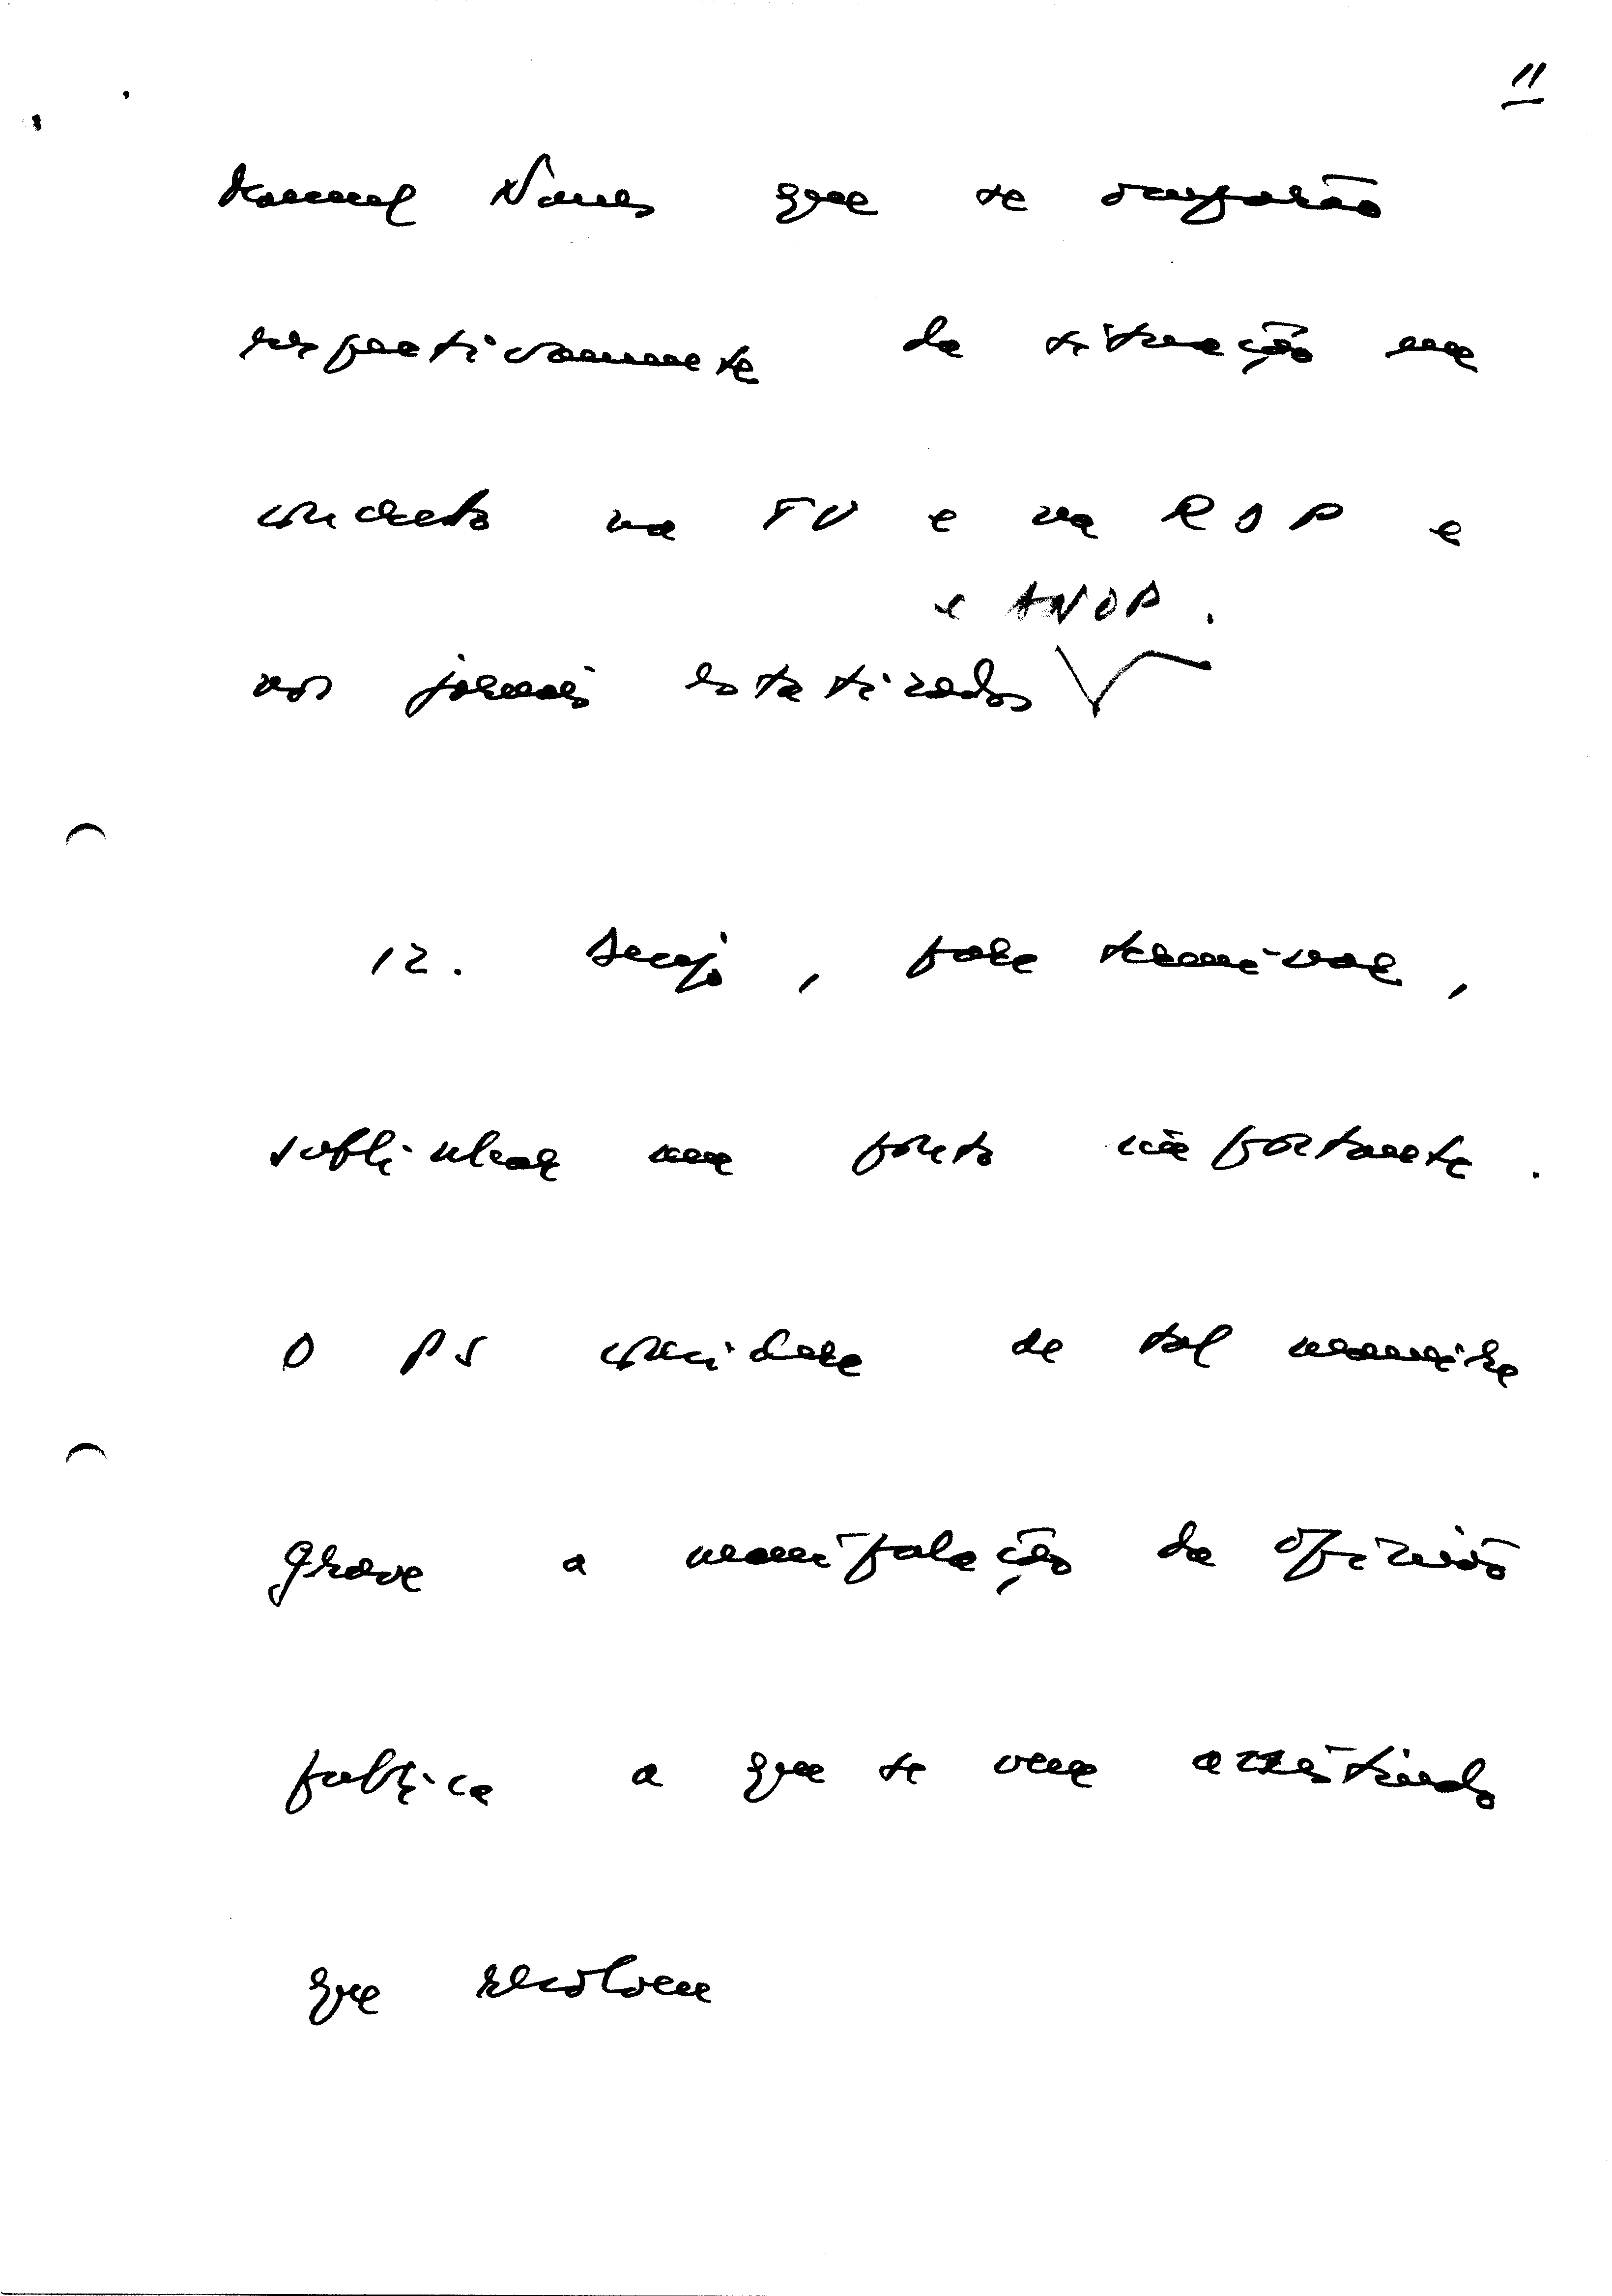 11
Manuel Nunes que se ocuparão
respectivamente da situação em
concreto na TV e na RDP e
e ANOP.
nos jornais estatizados
12. Desejo, para terminar,
sublinhar um ponto importante.
O PS considera de tal maneira
grave a manipulação da opinião
pública a que se vem assistindo
que resolveu